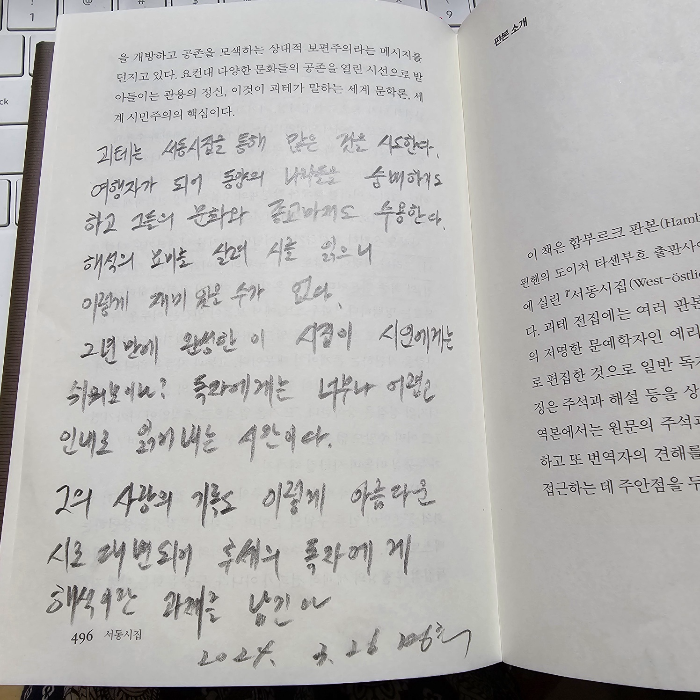 을 개방하고 공존을 모색하는 상대적 보편주의라는 메시지를
던지고 있다. 요컨대 다양한 문화들의 공존을 열린 시선으로 받
아들이는 관용의 정신, 이것이 괴테가 말하는 세계 문학론, 세
계 시민주의의 핵심이다.
괴테는 서동시집을 통해 많은 것을 시도한다.
여행자가 되어 동양의 나라들을 숭배하기도
하고 그들의 문화와 종교마저도 수용한다.
해석의 묘미를 살려 시를 읽으니
이렇게 재미 있을 수가 없다.
2년만에 완성한 이 시집이 시인에게는
쉬워보이나? 독자에게는 너무나 어렵고
인내로 읽어내는 시안이다.
그의 사랑의 기록도 이렇게 아름다운
시로 대변되어 후세의 독자에게
해석이란 과제를 남긴다
2024. 3. 26
496 서동시집
판본 소개
이 책은 함부르크 판본(Hamb
뮌헨의 도이처 타셴부흐 출판사에
에 실린 『서동시집(West-östlic
다. 괴테 전집에는 여러 판본
의 저명한 문예학자인 에리
로 편집한 것으로 일반 독기
징은 주석과 해설 등을 상
역본에서는 원문의 주석과
하고 또 번역자의 견해를
접근하는 데 주안점을 두